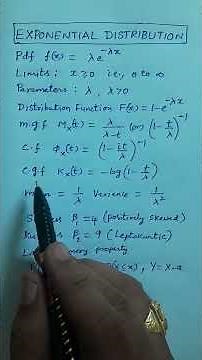 EXPONENTIAL DISTRIBUTION
Pdf f(x) = λe^-λx
Limits: x ≥ 0 i.e., 0 to ∞
Parameters: λ, λ>0
Distribution Function F(x) = 1-e^-λx
m.g.f Mx(t) = λ/(λ-t) (or) (1-t/λ)^-1
c.f ϕx(t) = (1-it/λ)^-1
c.g.f Kx(t) = -log(1-t/λ)
= 1/λ Variance = 1/λ²
β₁=4 (positively skewed)
β₂=9 (Leptokurtic)
property
≤x), Y=X-a